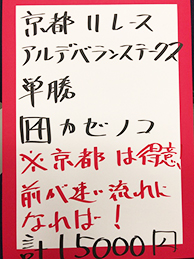 京都11レース
アルデバランステークス
単勝
14カゼノコ
※京都は得意
前が速い流れに
なれば!
計15000円